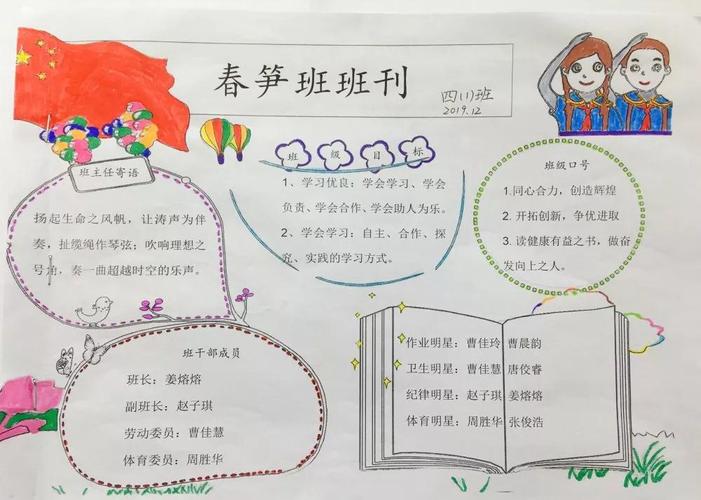 春笋班班刊
四(1)班
2019.12
班主任寄语
扬起生命之风帆，让涛声为伴
奏，扯缆绳作琴弦；吹响理想之
号角，奏一曲超越时空的乐声。
班级目标
1、学习优良：学会学习、学会
负责、学会合作、学会助人为乐。
2、学会学习：自主、合作、探
究、实践的学习方式。
班级口号
1.同心合力，创造辉煌
2. 开拓创新，争优进取
3. 读健康有益之书，做奋
发向上之人。
班干部成员
班长：姜熔熔
副班长：赵子琪
劳动委员：曹佳慧
体育委员：周胜华
作业明星：曹佳玲 曹晨韵
卫生明星：曹佳慧 唐佼睿
纪律明星：赵子琪 姜熔熔
体育明星：周胜华 张俊浩